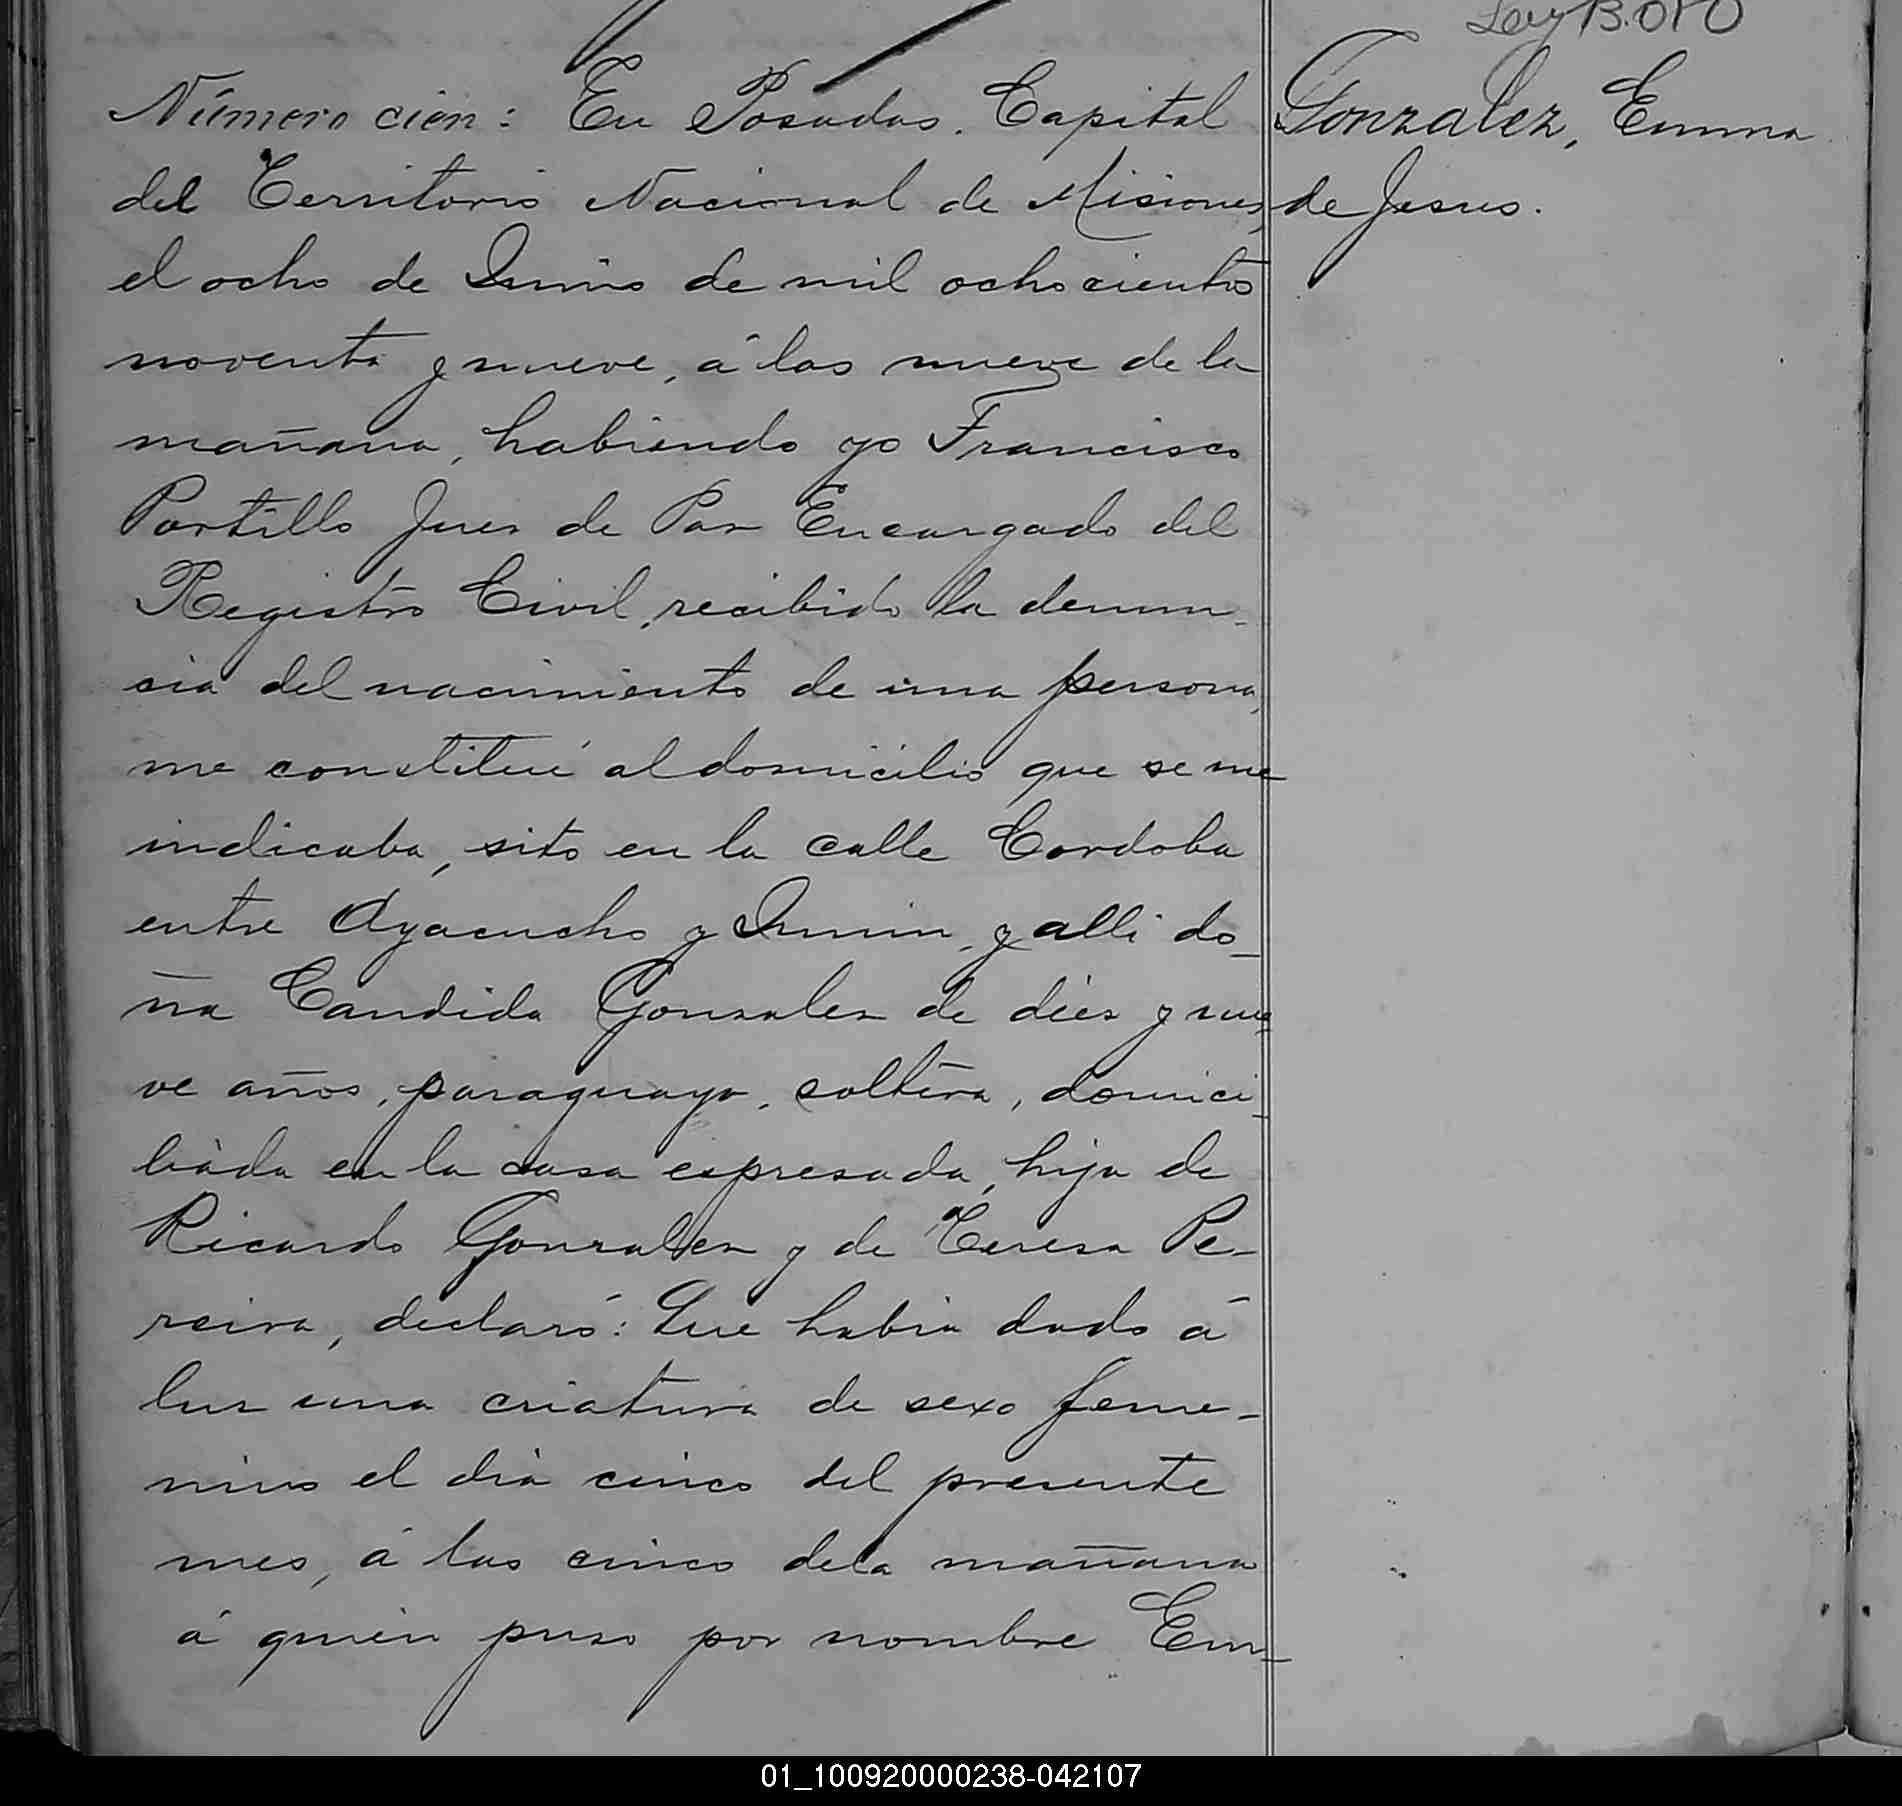 Ley 13.010
Gonzalez, Emma
de Jesus.
Número cien: En Posadas. Capital
del Territorio Nacional de Misiones,
el ocho de Junio de mil ochocientos
noventa y nueve, á las nueve de la
mañana, habiendo yo Francisco
Portillo Juez de Paz Encargado del
Registro Civil, recibido la denun-
sia del nacimiento de una persona,
me constituí al domicilio que se me
indicaba, sito en la calle Cordoba
entre Ayacucho y Junin, y alli do-
ña Candida Gonzalez de diez y nue-
ve años, paraguaya, soltera, domici-
liada en la casa espresada, hija de
Ricardo Gonzalez y de Teresa Pe-
reira, declaró: Que habia dado á
luz una criatura de sexo feme-
nino el dia cinco del presente
mes, á las cinco de la mañana
á quien puso por nombre Em-
01_100920000238-042107